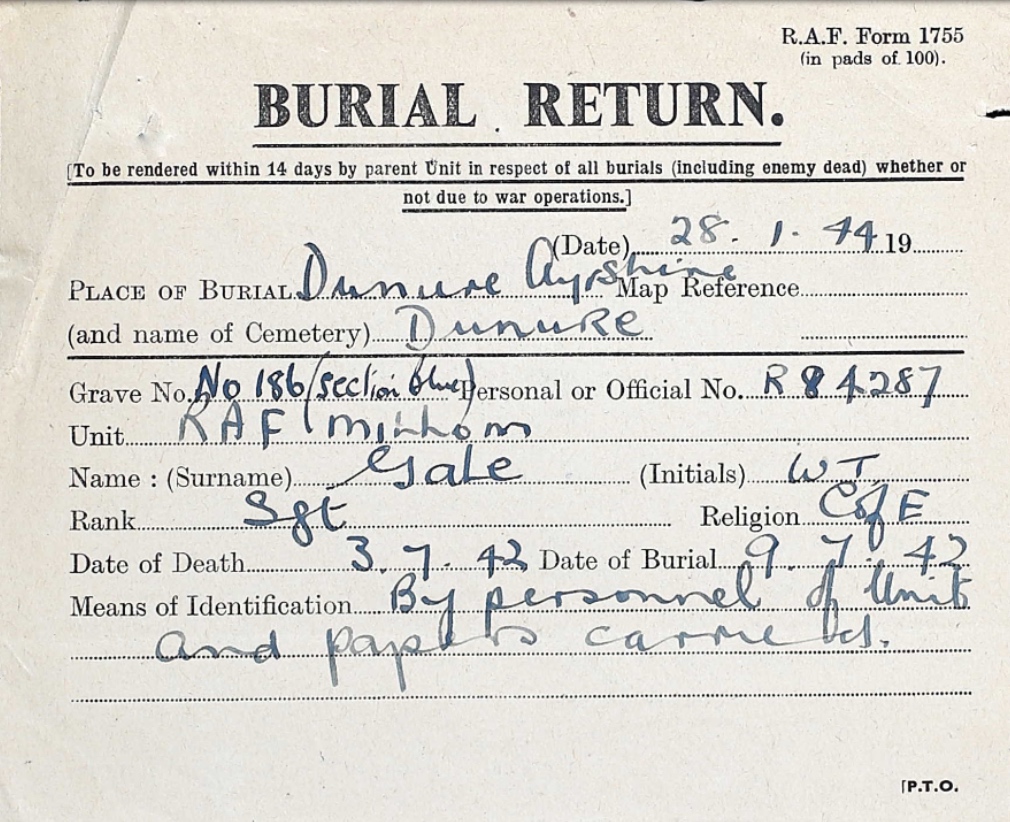 R.A.F. Form 1755
(in pads of 100).
BURIAL RETURN.
[To be rendered within 14 days by parent Unit in respect of all burials (including enemy dead) whether or
not due to war operations.]
(Date) 28. 1. 44 19
PLACE OF BURIAL Dunure Ayrshire Map Reference
(and name of Cemetery) Dunure
Grave No. No 186 (section blue) Personal or Official No. R 84287
Unit RAF
Name : (Surname) Gale (Initials) W T.
Rank Sgt Religion C of E
Date of Death 3. 7. 42 Date of Burial 9. 7. 42
Means of Identification By personnel of Unit
and papers carried.
[P.T.O.